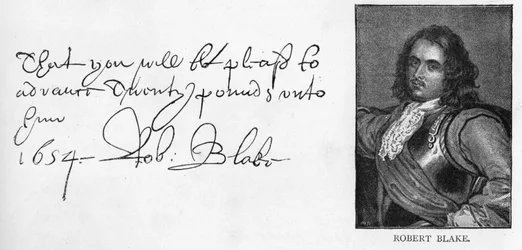 That you will be pleasd to
advance Twenty pounds unto
him
1654. Rob: Blake
ROBERT BLAKE.